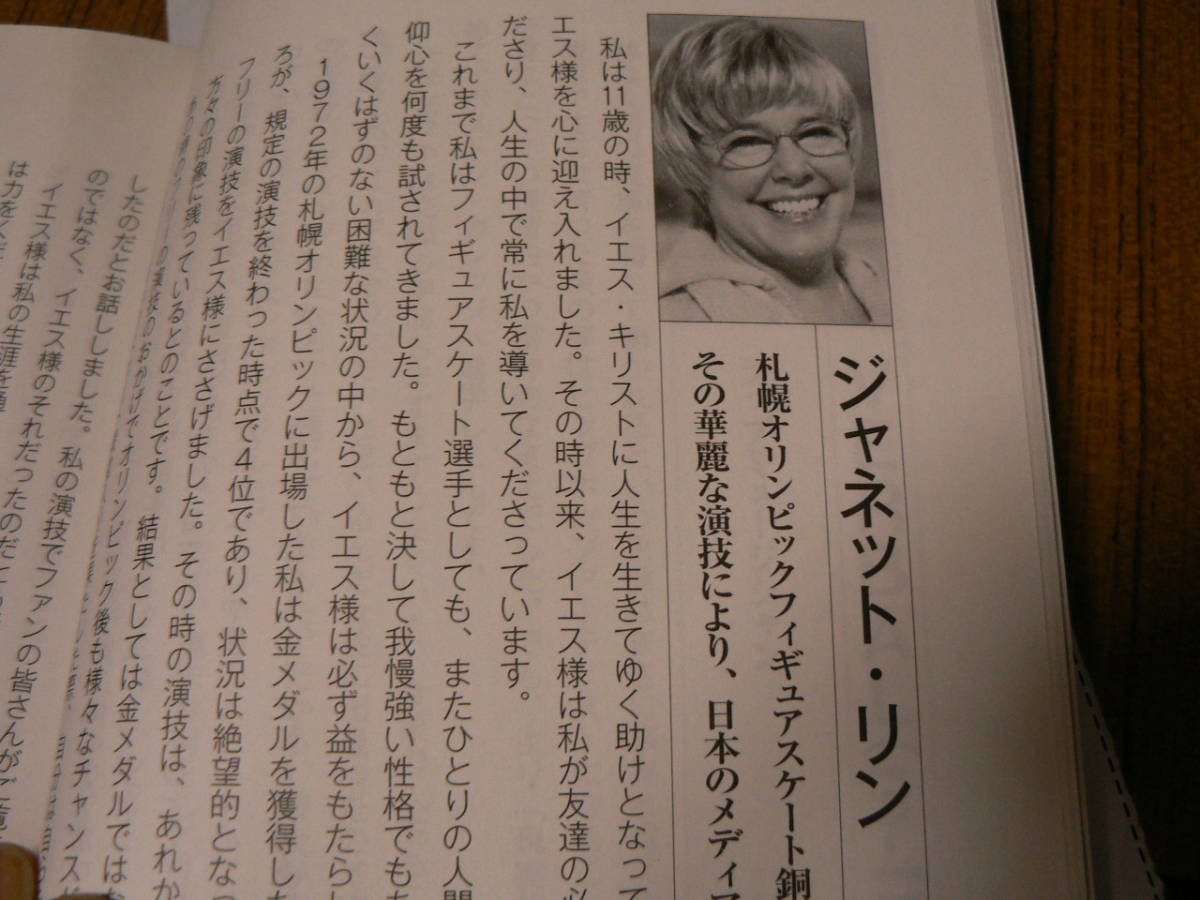 ジャネット・リン
札幌オリンピックフィギュアスケート銅
その華麗な演技により、日本のメディア
私は11歳の時、イエス・キリストに人生を生きてゆく助けとなって
エス様を心に迎え入れました。その時以来、イエス様は私が友達の必
ださり、人生の中で常に私を導いてくださっています。
これまで私はフィギュアスケート選手としても、またひとりの人間
仰心を何度も試されてきました。もともと決して我慢強い性格でもな
くいくはずのない困難な状況の中から、イエス様は必ず益をもたらし
1972年の札幌オリンピックに出場した私は金メダルを獲得した
ろが、規定の演技を終わった時点で4位であり、状況は絶望的となっ
フリーの演技をイエス様にささげました。その時の演技は、あれか
方々の印象に残っているとのことです。結果としては金メダルではな
の演技のおかげでオリンピック後も様々なチャンスが
したのだとお話ししました。私の演技でファンの皆さんがご覧
のではなく、イエス様のそれだったのだ
イエス様は私の生涯を通
は力を